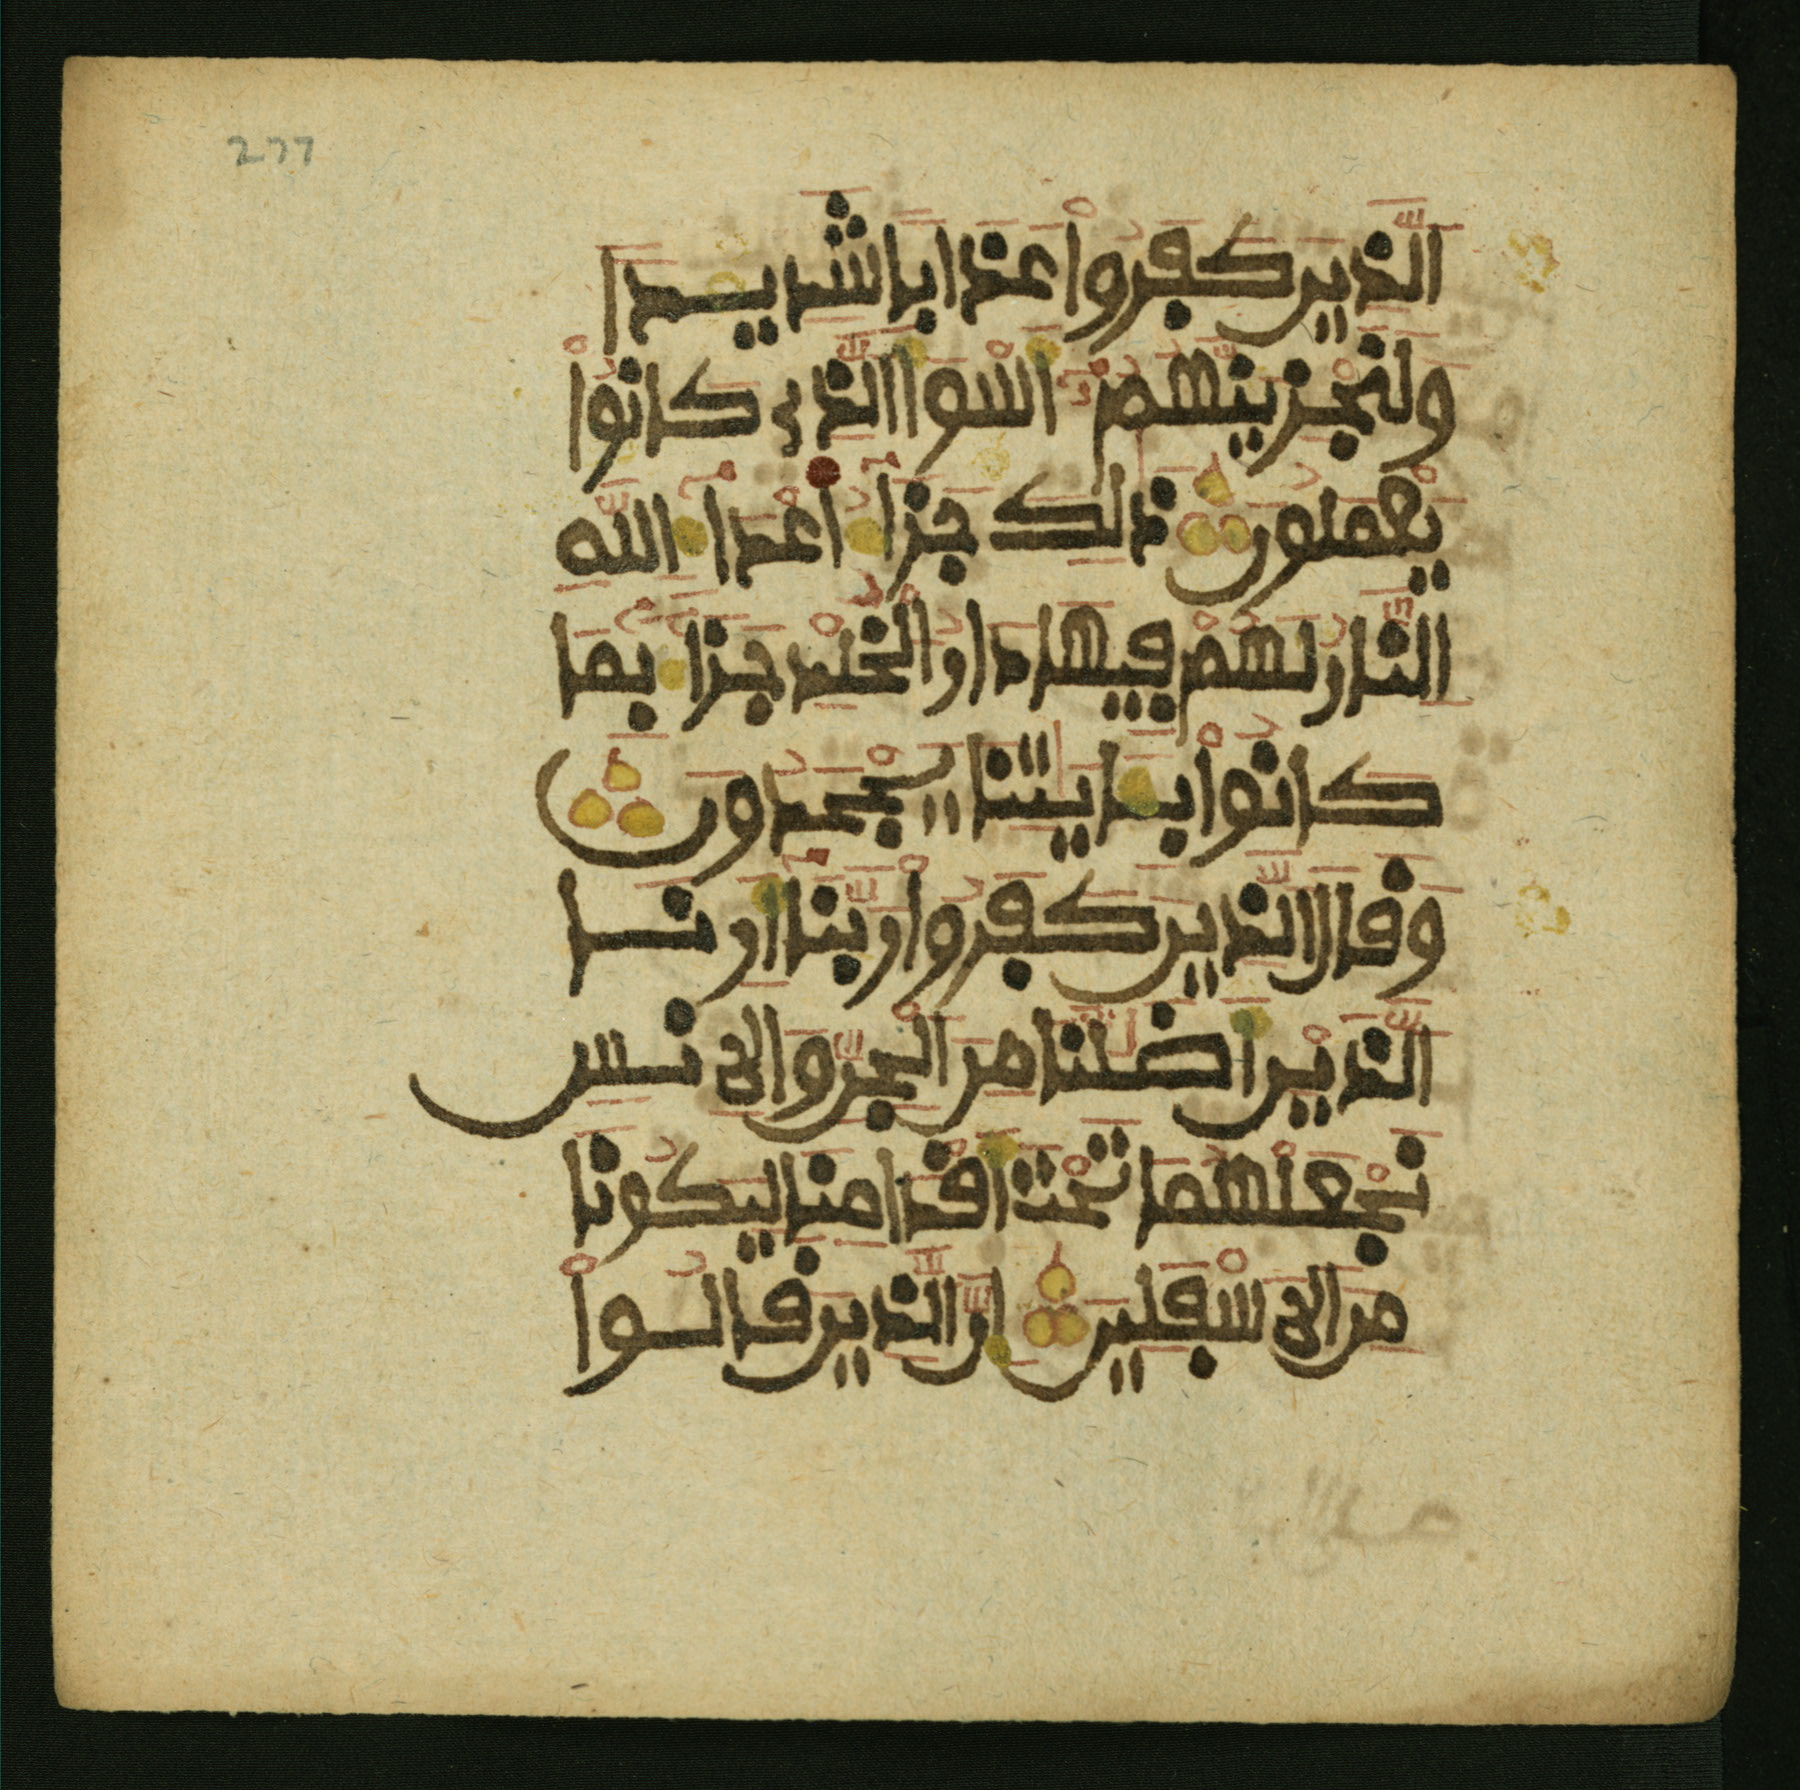 277
الذين كفروا عذابا شديدا
ولنجزينهم اسوا الذي كانوا
يعملون ذلك جزا اعدا الله
النار لهم فيها دار الخلد جزا بما
كانوا بـايتنا يجحدون
وقال الذين كفروا ربنا ارنا
الذين اضلنا من الجن والانس
نجعلهما تحت اقدامنا ليكونا
من الاسفلين ان الذين قالوا